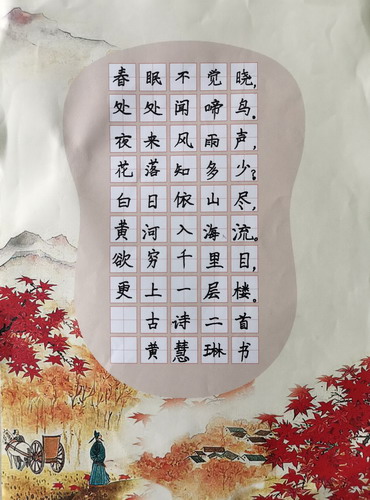 春眠不觉晓,
处处闻啼鸟。
夜来风雨声,
花落知多少?
白日依山尽,
黄河入海流。
欲穷千里目,
更上一层楼。
古诗二首
黄慧琳书